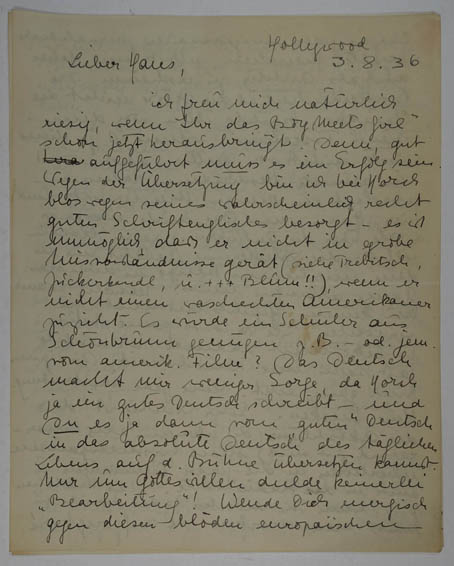 Hollywood
3.8.36
Lieber Hans,
ich freu mich natürlich
riesig, wenn Ihr das „Boy Meets Girl"
schon jetzt herausbringt! Denn, gut
aufgeführt muss es ein Erfolg sein.
Wegen der Übersetzung bin ich bei Horch
blos wegen seines wahrscheinlich recht
guten Schriftenglisches besorgt – es ist
unmöglich dass er nicht in grobe
Missverständnisse gerät (siehe Trebitsch,
Zuckerkandl, u. +++ Blum!!), wenn er
nicht einen waschechten Amerikaner
zuzieht. Es würde ein Schüler aus
Schönbrunn genügen z.B. – od. jem.
vom amerik. Film? Das Deutsch
macht mir weniger Sorge, da Horch
ja ein gutes Deutsch schreibt – und
Du es ja dann vom „guten" Deutsch
in das absolute Deutsch des täglichen
Lebens auf d. Bühne übersetzen kannst.
Nur um Gotteswillen dulde keinerlei
„Bearbeitung"! Wende Dich energisch
gegen diesen blöden europäischen